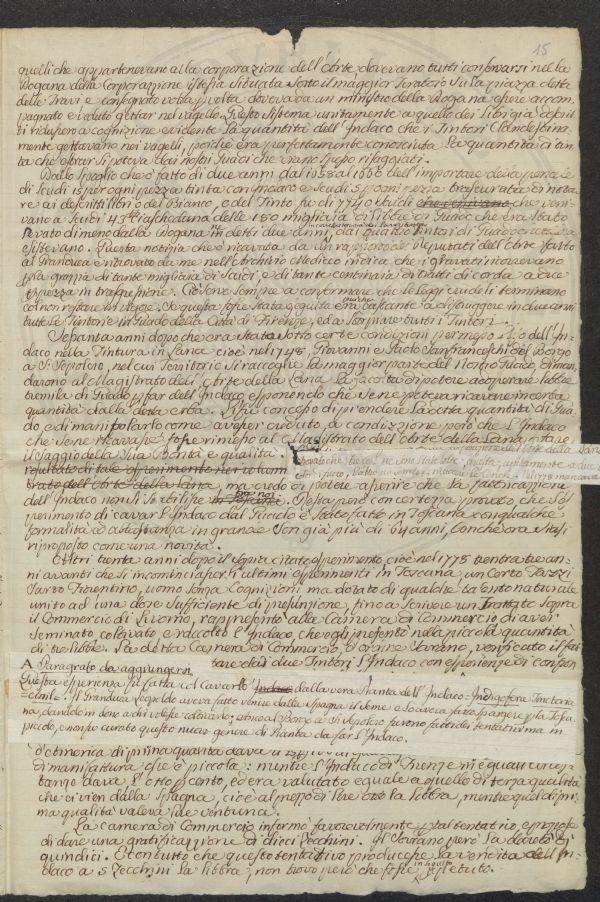 15
quelli che appartenevano alla corporazione dell'Arte dovevano tutti conservarsi nella
Dogana della Corporazione istessa situata sotto il maggior Tiratoio su la piazza detta
delle Travi e consegnato volta p volta doveva da un ministro della Dogana essere accom
pagnato e veduto gettar nel vagello. Questo sistema unitamente a quello dei libri già descrit
ti ridusse a cognizione evidente la quantità dell'Indaco che i Tintori Clandestina
mente gettavano nei vagelli, poichè era perfettamente conosciuta la quantità di tin
ta che estrar si poteva dai nostri Guadi che erano spesso risaggiati.
Dallo spoglio che ò fatto di due anni dal 1658 al 1660 dell'importare delle pene
di Scudi 15 per ogni pezza tinta con Indaco e Scudi 5 p ogni pezza trascurata di nota
re ai descritti libri del Bianco, o del Tinto fu di 7740 Scudi che veni
vano a Scudi 43 ciascheduna delle 180 migliaia di libbre di Guado che era stato
levato di meno dalla Dogana in detti due anni, dai quattro Tintori di Guado che
esistevano. Questa notizia che ò ricavata da un'informazione Deputati dell'Arte fatto
al Granduca e ritrovato da me nell'Archivio Mediceo indica che i gravati ricevevano
p la grazia di tante migliaia di Scudi, e di tante centinaia di tratti di corda a due
p pezza in trasgressione. Ciò serve sempre a confermare che le leggi crudeli terminano
col non restare in vigore. Se questa fosse stata eseguita era bastante a distruggere in due anni
tutte le Tintorie in Guado della Città di Firenze, ed a storpiare tutti i Tintori.
Sessanta anni dopo che era stato sotto certe condizioni permesso l'uso dell'In
daco nella Tintura in Lana cioè nel 1748 Giovanni e Guido Sanfranceschi del Borgo
a S. Sepolcro, nel cui Territorio si raccoglie la maggior parte del Nostro Guado, diman
darono al Magistrato dell'Arte della Lana la facoltà di potere adoperare libbre
tremila di Guado p far dell'Indaco esponendo che se ne poteva ricavare in certa
quantità dalla detta erba. Li fu concesso di prendere la detta quantità di Gua
do, e di manipolarlo come avesser creduto, a condizione però che l'Indaco
che se ne ricavasse fosse rimesso al Magistrato dell'Arte della Lana p fare
il saggio della sua bontà e qualità.
resultato di tale esperimento
trato dell'Arte della Lana, ma credo di potere asserire che la fabbricazione
dell'Indaco non si stabilisse. Resta però con certezza provato che lo es
perimento di cavar l'Indaco dal Guado è stato fatto in Toscana con qualche
formalità e abbastanza in grande son già più di 64 anni, benchè ora siasi
riproposto come una novità.
Altri trenta anni dopo il sopra citato esperimento cioè nel 1778 trentatre an
ni avanti che si incominciasser gli ultimi esperimenti in Toscana, un Certo Pazzi
Sarto Fiorentino, uomo senza Cognizioni ma dotato di qualche talento naturale
unito ad una dose sufficiente di presunzione, fino a scrivere un trattato sopra
il Commercio di Livorno, rappresentò alla Camera di Commercio di aver
seminato coltivato e raccolto l'Indaco, che egli presentò nella piccola quantità
di tre libbre. La detta Camera di Commercio
tare dai due Tintori l'Indaco con esperienze di confron
A Paragrafo da aggiungersi
Questa esperienza fu fatta col Cavarlo dalla vera Pianta dell'Indaco Indigofera Tinctoria
Il Granduca Leopoldo aveva fatto venire dalla Spagna il seme e lo aveva fatto spargere p la Tosca
na, dandolo in dono a chi volesse coltivarlo; attorno al Borgo a S. Sepolcro furono fatti dei tentativi ma in
piccolo, e non fu curato questo nuovo genere di Pianta da far l'Indaco.
d'America di prima qualità dava
di manifattura che è piccola: mentre l'Indaco di Firenze
dava, l'otto p cento, ed era valutato equale a quello di terza qualità
che ci vien dalla Spagna, cioè al prezzo di lire otto la libbra, mentre quel di pri
ma qualità valeva lire ventuna.
La Camera di Commercio informò favorevolmente p tal tentativo e propose
di dare una gratificazione di dieci Zecchini. Il Sovrano però la decretò di
quindici. E con tutto che questo tentativo producesse la vendita dell'In
daco a 5 Zecchini la libbra, non trovo però che fosse in seguito ripetuto.